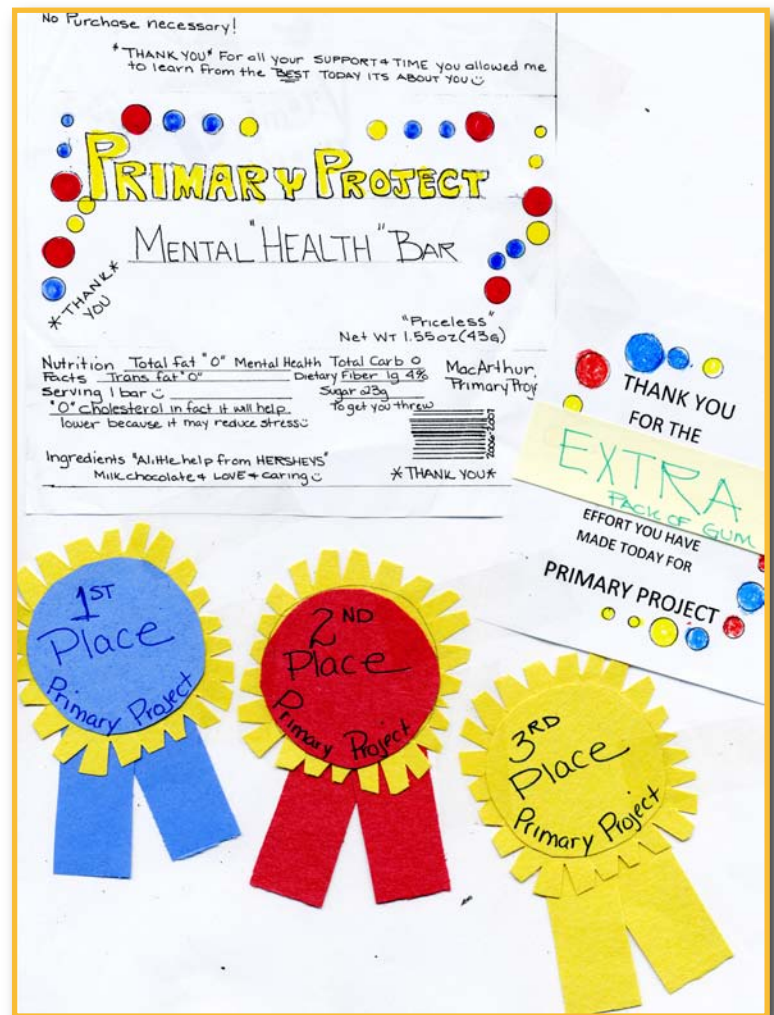 No Purchase necessary!
*THANK YOU* For all your SUPPORT & TIME you allowed me
to learn from the BEST TODAY ITS ABOUT YOU
PRIMARY PROJECT
MENTAL "HEALTH" BAR
*THANK*
YOU
"Priceless"
Net WT 1.55oz (43g)
Nutrition Total fat "0" Mental Health Total Carb 0
Facts Trans fat "0" Dietary Fiber 1g 4%
Serving 1 bar Sugar 23g
"O" cholesterol in fact it will help To get you threw
lower because it may reduce stress
MacArthur,
Primary Proj
2006-2007
Ingredients "A little help from HERSHEYS"
Milk chocolate & LOVE & caring
*THANK YOU*
THANK YOU
FOR THE
EXTRA
PACK OF GUM
EFFORT YOU HAVE
MADE TODAY FOR
PRIMARY PROJECT
1ST
Place
Primary Project
2ND
Place
Primary Project
3RD
Place
Primary Project